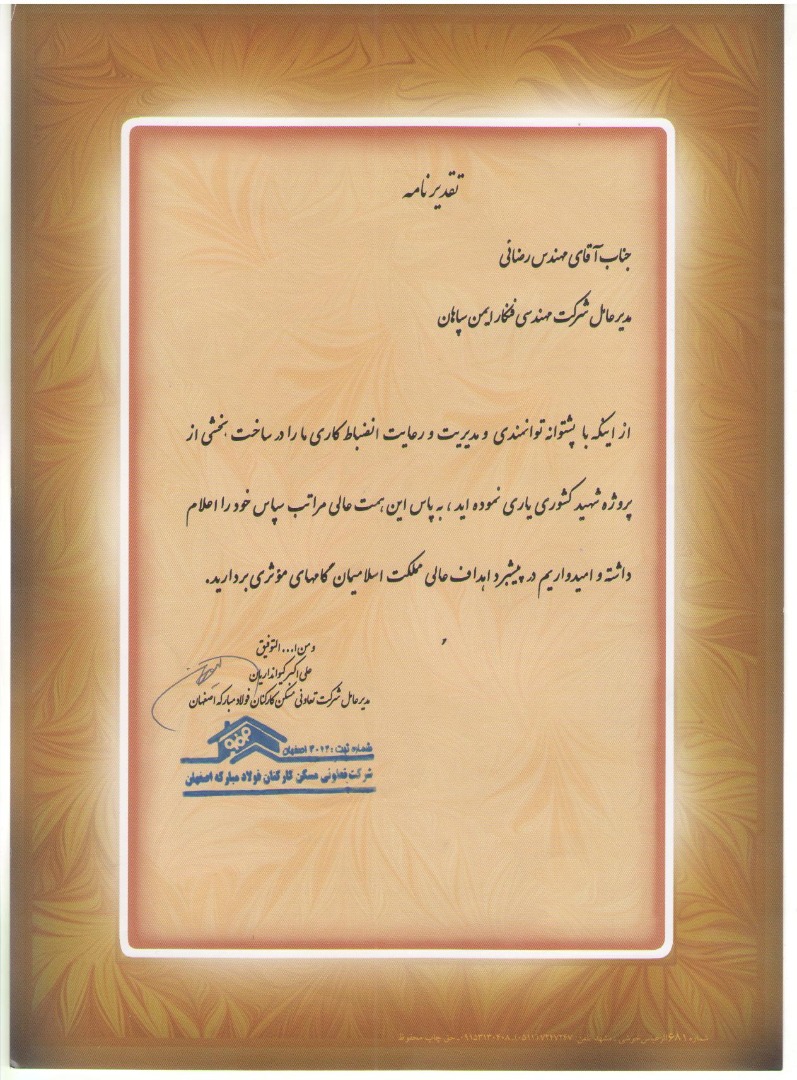 تقدیر نامه
جناب آقای مهندس رضائی
مدیر عامل شرکت مهندسی فنکار ایمن سپاهان
از اینکه با پشتوانه توانمندی و مدیریت و رعایت انضباط کاری ما را در ساخت بخشی از
پروژه شهید کشوری یاری نموده اید ، به پاس این همت عالی مراتب سپاس خود را اعلام
داشته و امیدواریم در پیشبرد اهداف عالی مملکت اسلامیمان گامهای مؤثری بردارید.
و من ا... التوفیق
علی اکبر کیوانداریان
مدیر عامل شرکت تعاونی مسکن کارکنان فولاد مبارکه اصفهان
شماره ثبت : اصفهان
شرکت تعاونی مسکن کارکنان فولاد مبارکه اصفهان
شماره ۶۸۱ مشهد تلفن حق چاپ محفوظ